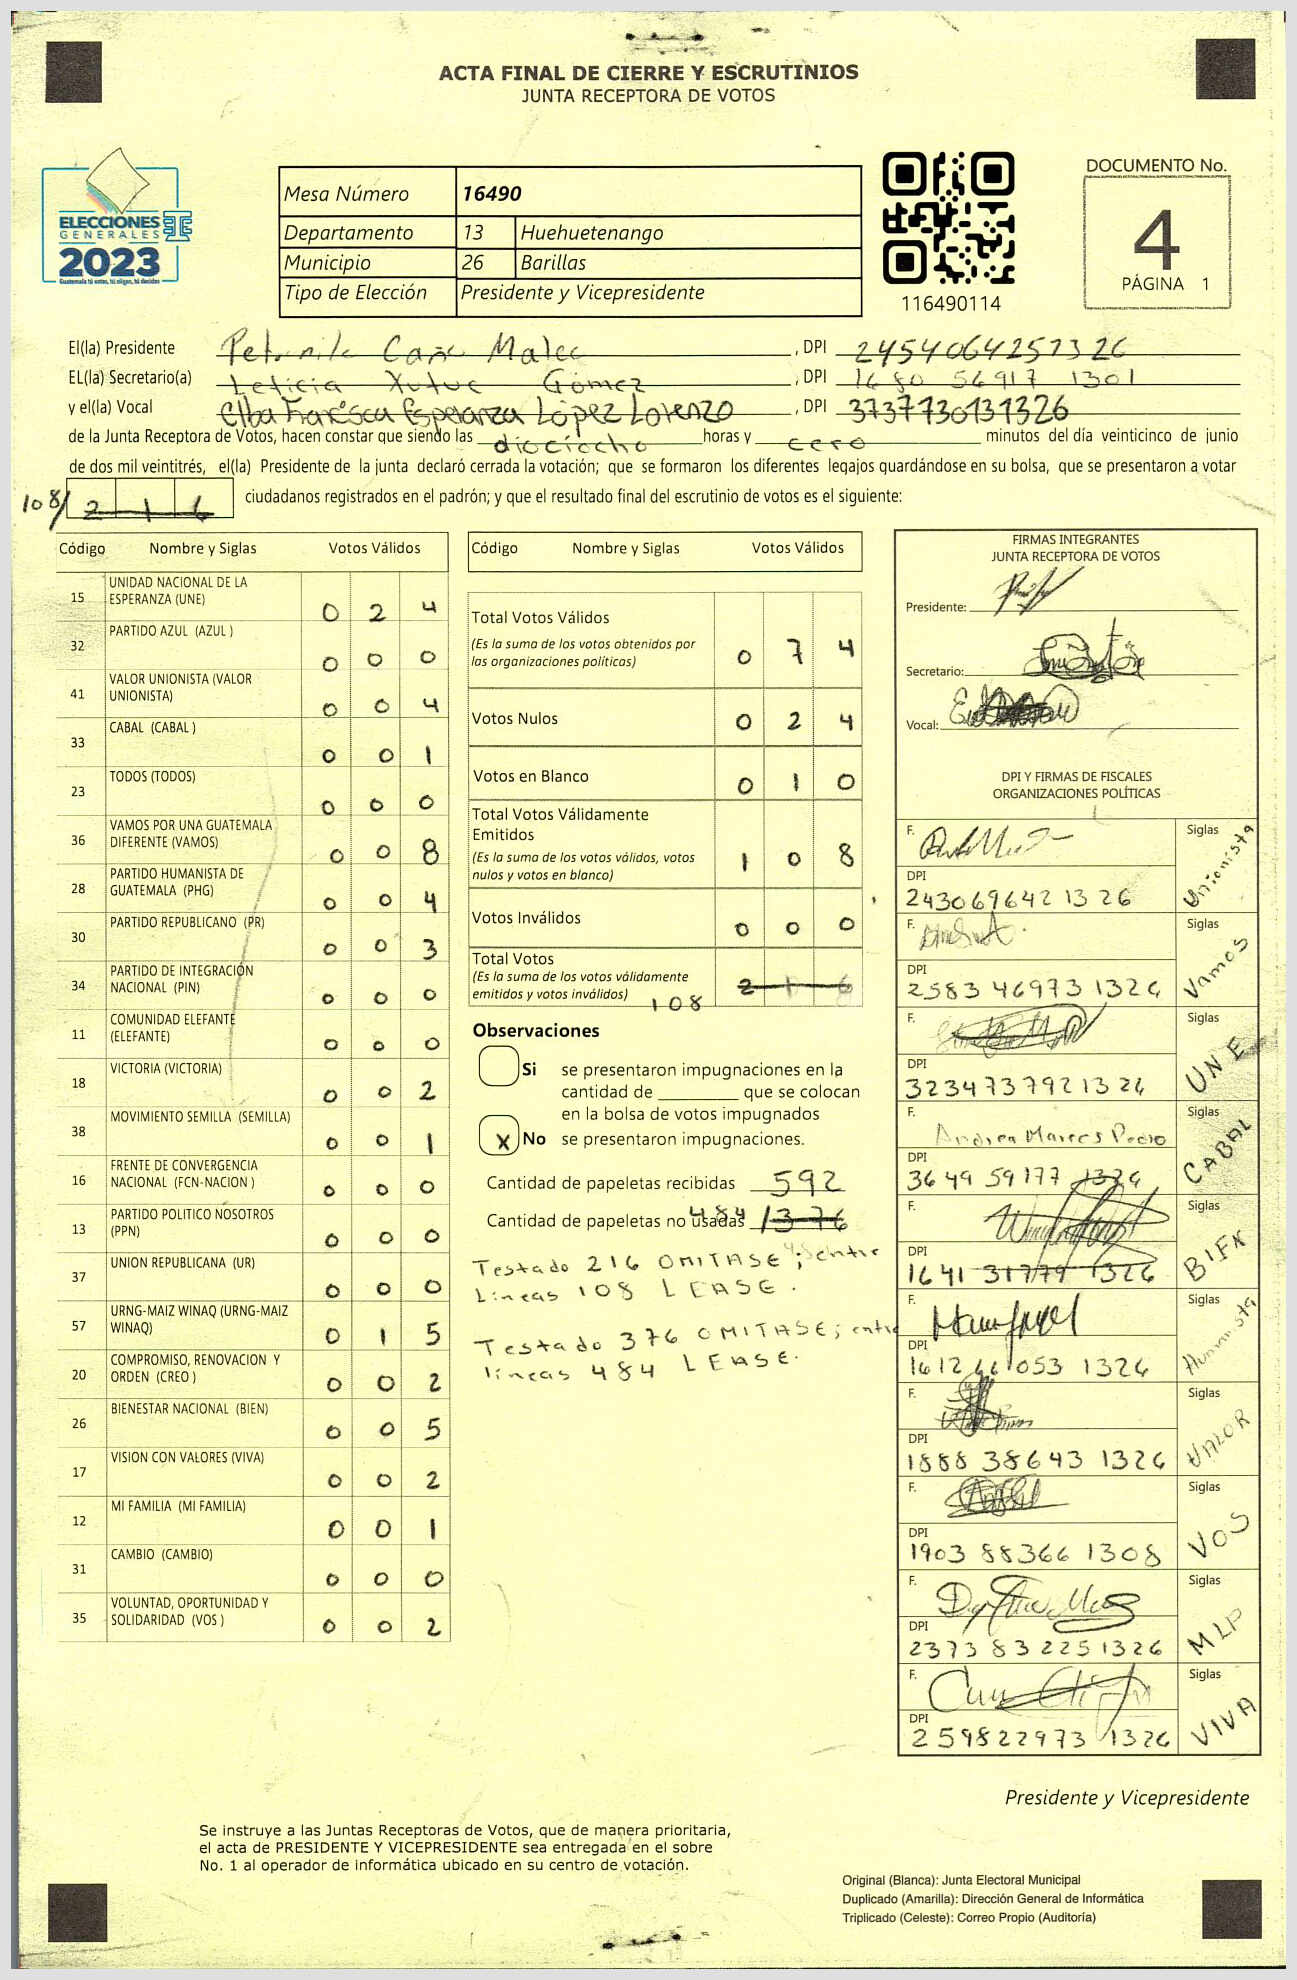 ACTA FINAL DE CIERRE Y ESCRUTINIOS
JUNTA RECEPTORA DE VOTOS
ELECCIONES
GENERALES
2023
Guatemala tú votas, tú eliges, tú decides
Mesa Número 16490
Departamento 13 Huehuetenango
Municipio 26 Barillas
Tipo de Elección Presidente y Vicepresidente
116490114
DOCUMENTO No.
4
PÁGINA 1
El(la) Presidente Petronila Cano Malec , DPI 2454064251326
EL(la) Secretario(a) Leticia Xutuc Gómez , DPI 1680 56917 1301
y el(la) Vocal Elba Francisca Esperanza López Lorenzo , DPI 3737730131326
de la Junta Receptora de Votos, hacen constar que siendo las dieciocho horas y cero minutos del día veinticinco de junio
de dos mil veintitrés, el(la) Presidente de la junta declaró cerrada la votación; que se formaron los diferentes legajos quardándose en su bolsa, que se presentaron a votar
108/ 216 ciudadanos registrados en el padrón; y que el resultado final del escrutinio de votos es el siguiente:
Código Nombre y Siglas Votos Válidos
15 UNIDAD NACIONAL DE LA ESPERANZA (UNE) 0 2 4
32 PARTIDO AZUL (AZUL ) 0 0 0
41 VALOR UNIONISTA (VALOR UNIONISTA) 0 0 4
33 CABAL (CABAL ) 0 0 1
23 TODOS (TODOS) 0 0 0
36 VAMOS POR UNA GUATEMALA DIFERENTE (VAMOS) 0 0 8
28 PARTIDO HUMANISTA DE GUATEMALA (PHG) 0 0 4
30 PARTIDO REPUBLICANO (PR) 0 0 3
34 PARTIDO DE INTEGRACIÓN NACIONAL (PIN) 0 0 0
11 COMUNIDAD ELEFANTE (ELEFANTE) 0 0 0
18 VICTORIA (VICTORIA) 0 0 2
38 MOVIMIENTO SEMILLA (SEMILLA) 0 0 1
16 FRENTE DE CONVERGENCIA NACIONAL (FCN-NACION ) 0 0 0
13 PARTIDO POLITICO NOSOTROS (PPN) 0 0 0
37 UNION REPUBLICANA (UR) 0 0 0
57 URNG-MAIZ WINAQ (URNG-MAIZ WINAQ) 0 1 5
20 COMPROMISO, RENOVACION Y ORDEN (CREO ) 0 0 2
26 BIENESTAR NACIONAL (BIEN) 0 0 5
17 VISION CON VALORES (VIVA) 0 0 2
12 MI FAMILIA (MI FAMILIA) 0 0 1
31 CAMBIO (CAMBIO) 0 0 0
35 VOLUNTAD, OPORTUNIDAD Y SOLIDARIDAD (VOS ) 0 0 2
Código Nombre y Siglas Votos Válidos
Total Votos Válidos 0 7 4
(Es la suma de los votos obtenidos por
las organizaciones políticas)
Votos Nulos 0 2 4
Votos en Blanco 0 1 0
Total Votos Válidamente
Emitidos 1 0 8
(Es la suma de los votos válidos, votos
nulos y votos en blanco)
Votos Inválidos 0 0 0
Total Votos
(Es la suma de los votos válidamente 2 1 6
emitidos y votos inválidos) 108
Observaciones
Si se presentaron impugnaciones en la
cantidad de ________ que se colocan
en la bolsa de votos impugnados
x No se presentaron impugnaciones.
Cantidad de papeletas recibidas 592
Cantidad de papeletas no usadas 484 / 376
Testado 216 OMITASE; entre
Líneas 108 LEASE.
Testado 376 OMITASE; entre
líneas 484 LEASE.
FIRMAS INTEGRANTES
JUNTA RECEPTORA DE VOTOS
Presidente:
Secretario:
Vocal:
DPI Y FIRMAS DE FISCALES
ORGANIZACIONES POLÍTICAS
F. Siglas Unionista
DPI
243069642 1326
F. Siglas Vamos
DPI
2583 46973 1326
F. Siglas UNE
DPI
3234737921326
F. Andrea Marcos Pedro Siglas CABAL
DPI
3649 59177 1326
F. Siglas BIEN
DPI
1641 31779 1326
F. Siglas Humanista
DPI
1612 61053 1326
F. Siglas VALOR
DPI
1888 38643 1326
F. Siglas VOS
DPI
1903 88366 1308
F. Siglas MLP
DPI
2373 83225 1326
F. Siglas VIVA
DPI
259822973 1326
Presidente y Vicepresidente
Se instruye a las Juntas Receptoras de Votos, que de manera prioritaria,
el acta de PRESIDENTE Y VICEPRESIDENTE sea entregada en el sobre
No. 1 al operador de informática ubicado en su centro de votación.
Original (Blanca): Junta Electoral Municipal
Duplicado (Amarilla): Dirección General de Informática
Triplicado (Celeste): Correo Propio (Auditoría)